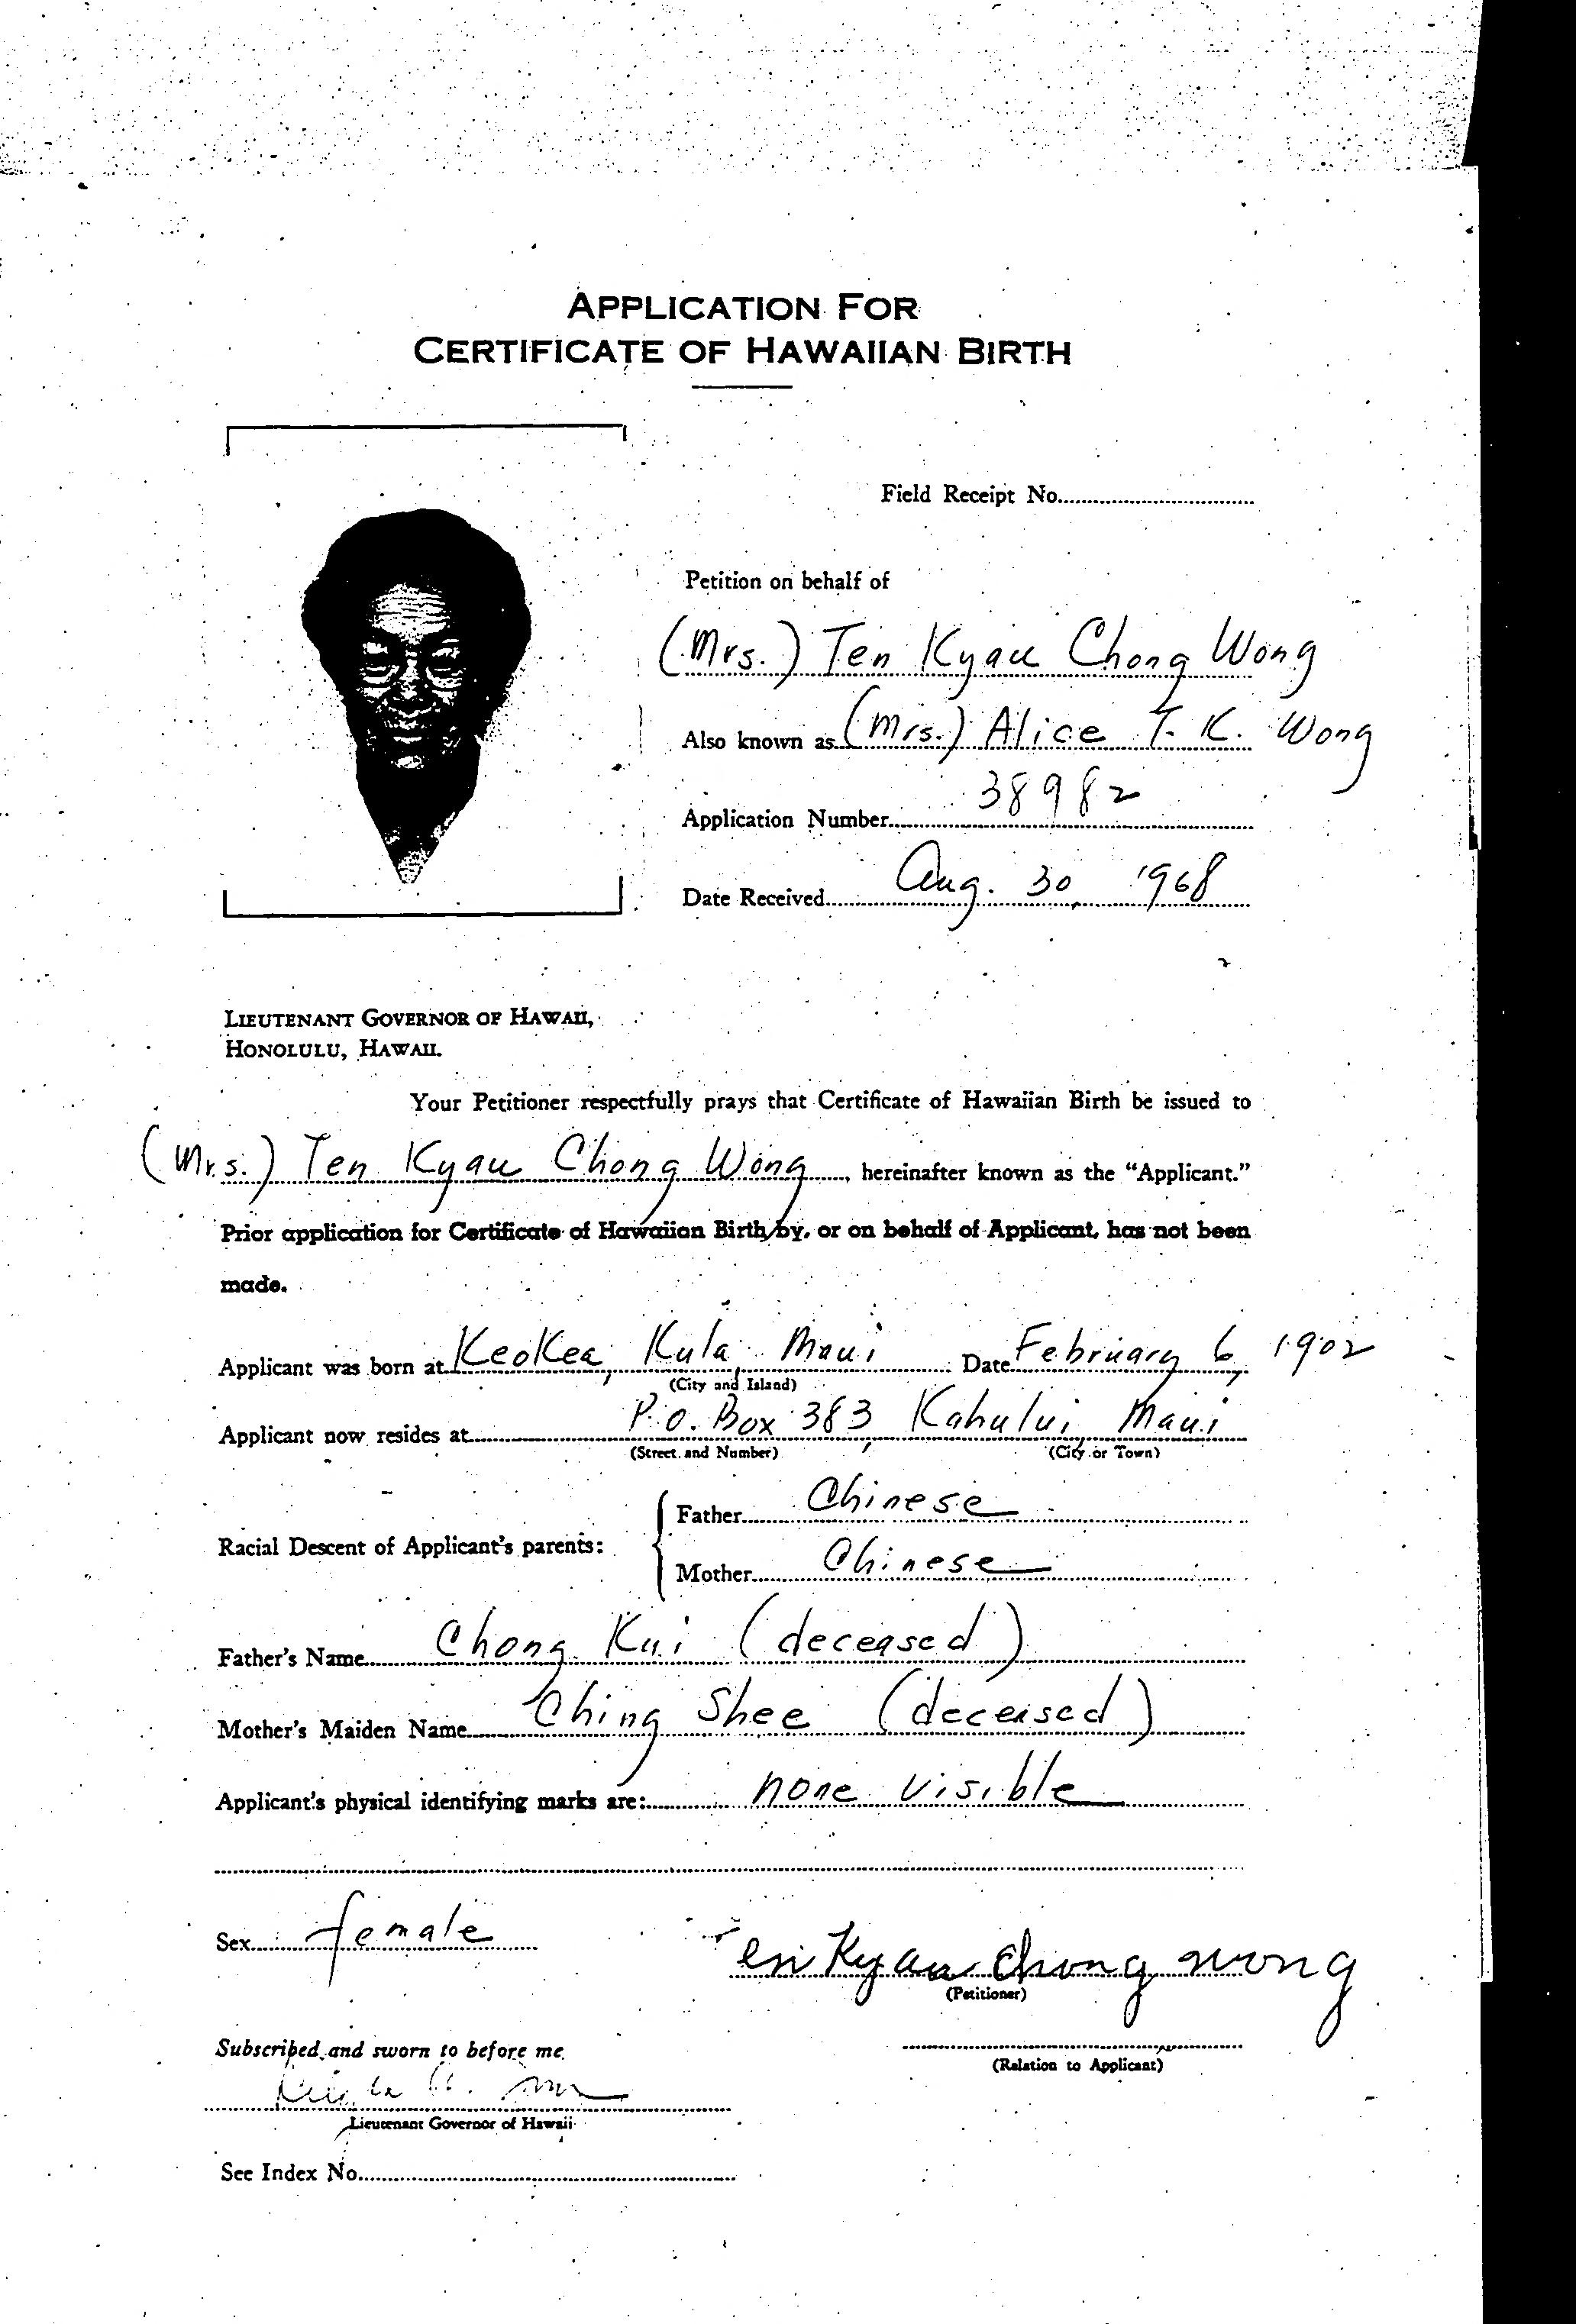 APPLICATION FOR
CERTIFICATE OF HAWAIIAN BIRTH
Field Receipt No.
Petition on behalf of
(Mrs.) Ten Kyau Chong Wong
Also known as (Mrs.) Alice T. K. Wong
Application Number 38982
Date Received Aug. 30, 1968
LIEUTENANT GOVERNOR OF HAWAII,
HONOLULU, HAWAII.
Your Petitioner respectfully prays that Certificate of Hawaiian Birth be issued to
(Mrs.) Ten Kyau Chong Wong, hereinafter known as the “Applicant.”
Prior application for Certificate of Hawaiian Birth by, or on behalf of Applicant, has not been
made.
Applicant was born at Keokea, Kula, Maui Date February 6, 1902
(City and Island)
Applicant now resides at P.O. Box 383, Kahului, Maui
(Street and Number) (City or Town)
Racial Descent of Applicant's parents:
Father Chinese
Mother Chinese
Father's Name Chong Kui (deceased)
Mother's Maiden Name Ching Shee (deceased)
Applicant's physical identifying marks are: none visible
Sex female
Ten Kyau Chong Wong
(Petitioner)
Subscribed and sworn to before me
(Relation to Applicant)
Lieutenant Governor of Hawaii
See Index No.